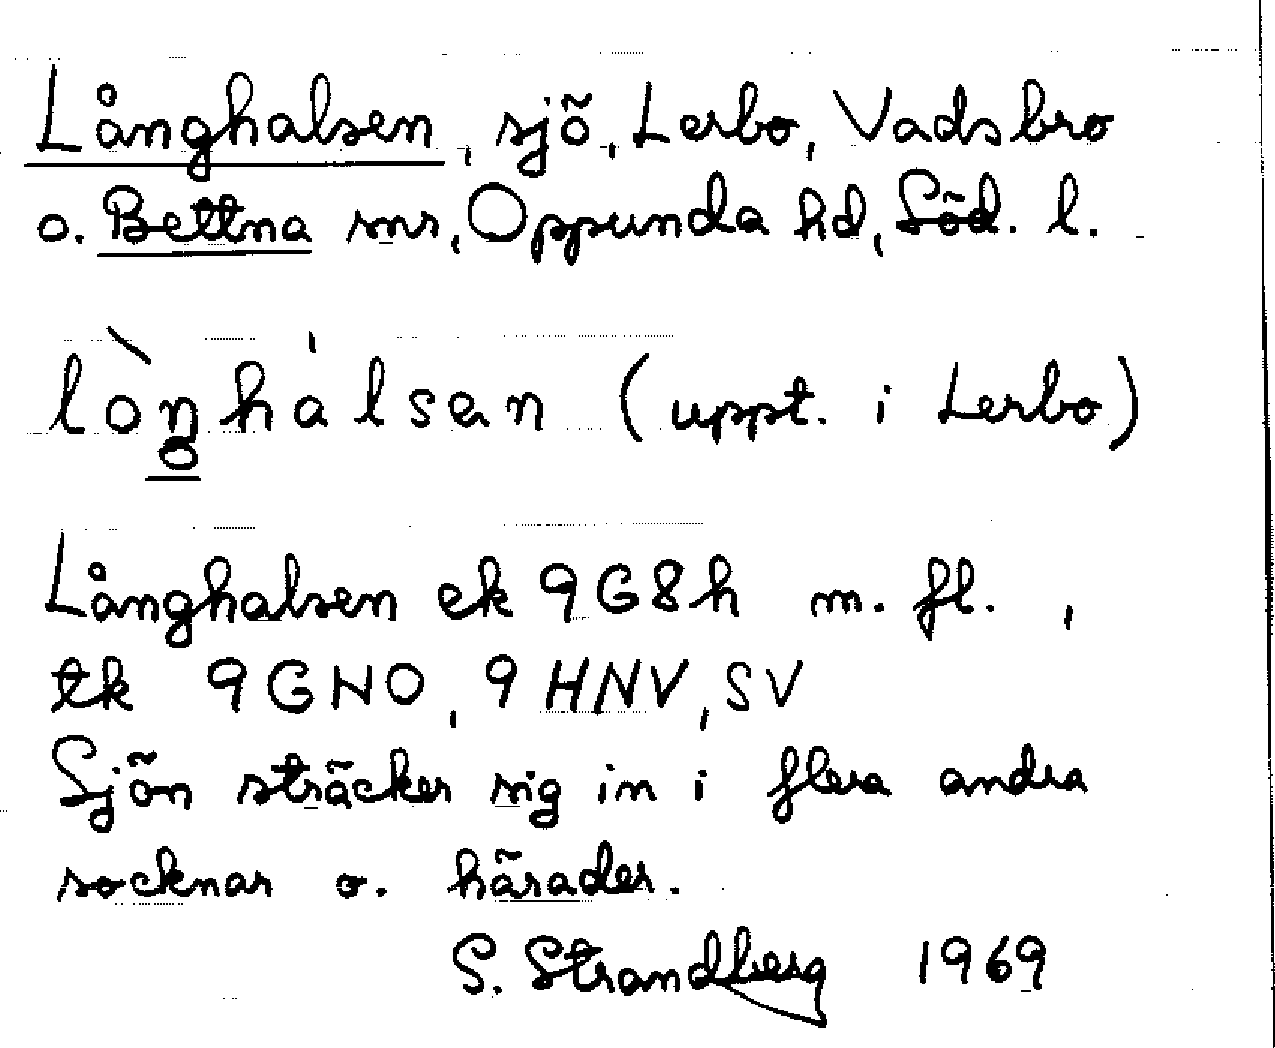 Långhalsen, sjö, Lerbo, Vadsbro
o. Bettna snr, Oppunda hd, Söd. l.
lòŋhálsen (uppt. i Lerbo)
Långhalsen ek 9G8h m. fl. ,
tk 9GNO, 9HNV, SV
Sjön sträcker sig in i flera andra
socknar o. härader.
S. Strandberg 1969